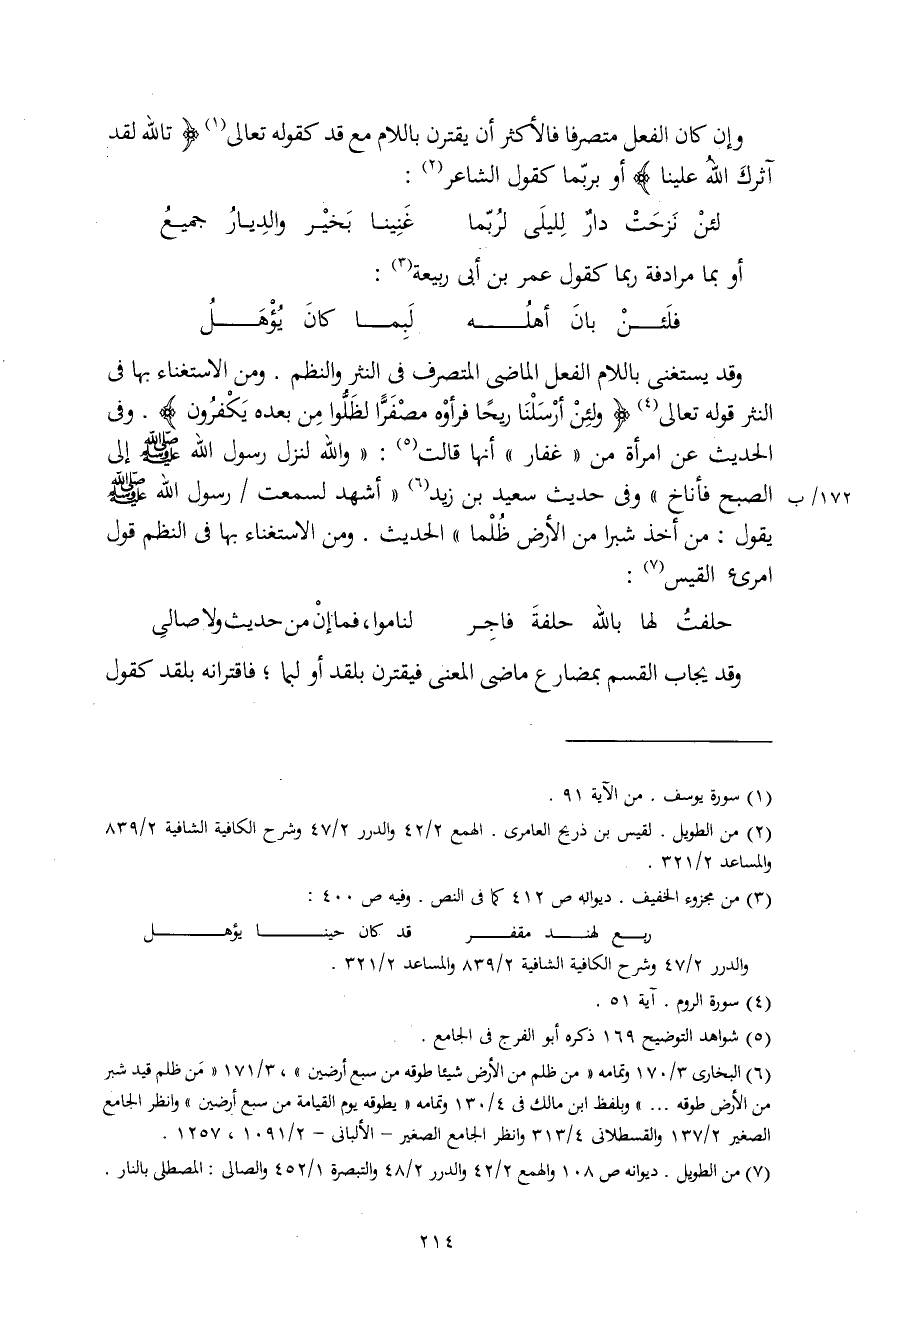 وإن كان الفعل متصرفا فالأكثر أن يقترن باللام مع قد كقوله تعالى(١) ﴿ تالله لقد
آثرك اللهُ علينا ﴾ أو بربّما كقول الشاعر(٢) :
لئنْ نَزحَتْ دارٌ لِليلَى لرُبّما غَنِينا بَخيْر والدِيارُ جميعُ
أو بما مرادفة ربما كقول عمر بن أبى ربيعة(٣) :
فلَئنْ بانَ أهلُه لَبِما كانَ يُؤْهَلُ
وقد يستغنى باللام الفعل الماضى المتصرف فى النثر والنظم . ومن الاستغناء بها فى
النثر قوله تعالى(٤) ﴿ ولئِنْ أرْسَلْنَا ريحًا فرأوْه مصْفَرًّا لظَلُّوا مِن بعده يَكْفرُون ﴾ . وفى
الحديث عن امرأة من « غفار » أنها قالت(٥) : « والله لنزل رسول الله ﷺ إلى
١٧٢/ ب الصبح فأناخ » وفى حديث سعيد بن زيد(٦) « أشهد لسمعت / رسول الله ﷺ
يقول : من أخذ شبرا من الأرض ظُلْما » الحديث . ومن الاستغناء بها فى النظم قول
امرئ القيس(٧) :
حلفتُ لها بالله حلفةَ فاجِر لناموا، فما إنْ من حديث ولا صالىِ
وقد يجاب القسم بمضارع ماضى المعنى فيقترن بلقد أو لبما ؛ فاقترانه بلقد كقول
(١) سورة يوسف . من الآية ٩١ .
(٢) من الطويل . لقيس بن ذريح العامرى . الهمع ٤٢/٢ والدرر ٤٧/٢ وشرح الكافية الشافية ٨٣٩/٢
والمساعد ٣٢١/٢ .
(٣) من مجزوء الخفيف . ديواله ص ٤١٢ كما فى النص . وفيه ص ٤٠٠ :
ربع لهند مقفر قد كان حينا يؤهل
والدرر ٤٧/٢ وشرح الكافية الشافية ٨٣٩/٢ والمساعد ٣٢١/٢ .
(٤) سورة الروم . آية ٥١ .
(٥) شواهد التوضيح ١٦٩ ذكره أبو الفرج فى الجامع .
(٦) البخارى ١٧٠/٣ وتمامه « من ظلم من الأرض شيئا طوقه من سبع أرضين » ، ١٧١/٣ « مَن ظلم قيد شبر
من الأرض طوقه ... » وبلفظ ابن مالك فى ١٣٠/٤ وتمامه « يطوقه يوم القيامة من سبع أرضين » وانظر الجامع
الصغير ١٣٧/٢ والقسطلانى ٣١٣/٤ وانظر الجامع الصغير – الألبانى – ١٠٩١/٢ ، ١٢٥٧ .
(٧) من الطويل . ديوانه ص ١٠٨ والهمع ٤٢/٢ والدرر ٤٨/٢ والتبصرة ٤٥٢/١ والصالى : المصطلى بالنار .
٢١٤